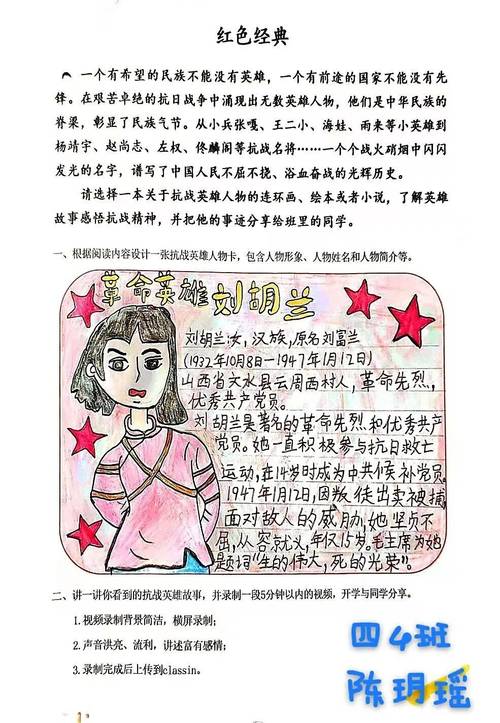 红色经典
一个有希望的民族不能没有英雄，一个有前途的国家不能没有先
锋。在艰苦卓绝的抗日战争中涌现出无数英雄人物，他们是中华民族的
脊梁，彰显了民族气节。从小兵张嘎、王二小、海娃、雨来等小英雄到
杨靖宇、赵尚志、左权、佟麟阁等抗战名将……一个个战火硝烟中闪闪
发光的名字，谱写了中国人民不屈不挠、浴血奋战的光辉历史。
请选择一本关于抗战英雄人物的连环画、绘本或者小说，了解英雄
故事感悟抗战精神，并把他的事迹分享给班里的同学。
一、根据阅读内容设计一张抗战英雄人物卡，包含人物形象、人物姓名和人物简介等。
革命英雄刘胡兰
刘胡兰女，汉族，原名刘富兰
(1932年10月8日—1947年1月12日)
山西省文水县云周西村人，革命先烈，
优秀共产党员。
刘胡兰是著名的革命先烈和优秀共产
党员。她一直积极参与抗日救亡
运动，在14岁时成为中共候补党员。
1947年1月12日，因叛徒出卖被捕，
面对敌人的威胁，她坚贞不
屈，从容就义，年仅15岁。毛主席为她
题词"生的伟大，死的光荣"。
二、讲一讲你看到的抗战英雄故事，并录制一段5分钟以内的视频，开学与同学分享。
1.视频录制背景简洁，横屏录制；
2.声音洪亮、流利，讲述富有感情；
3.录制完成后上传到classin。
四4班
陈玥瑶
1